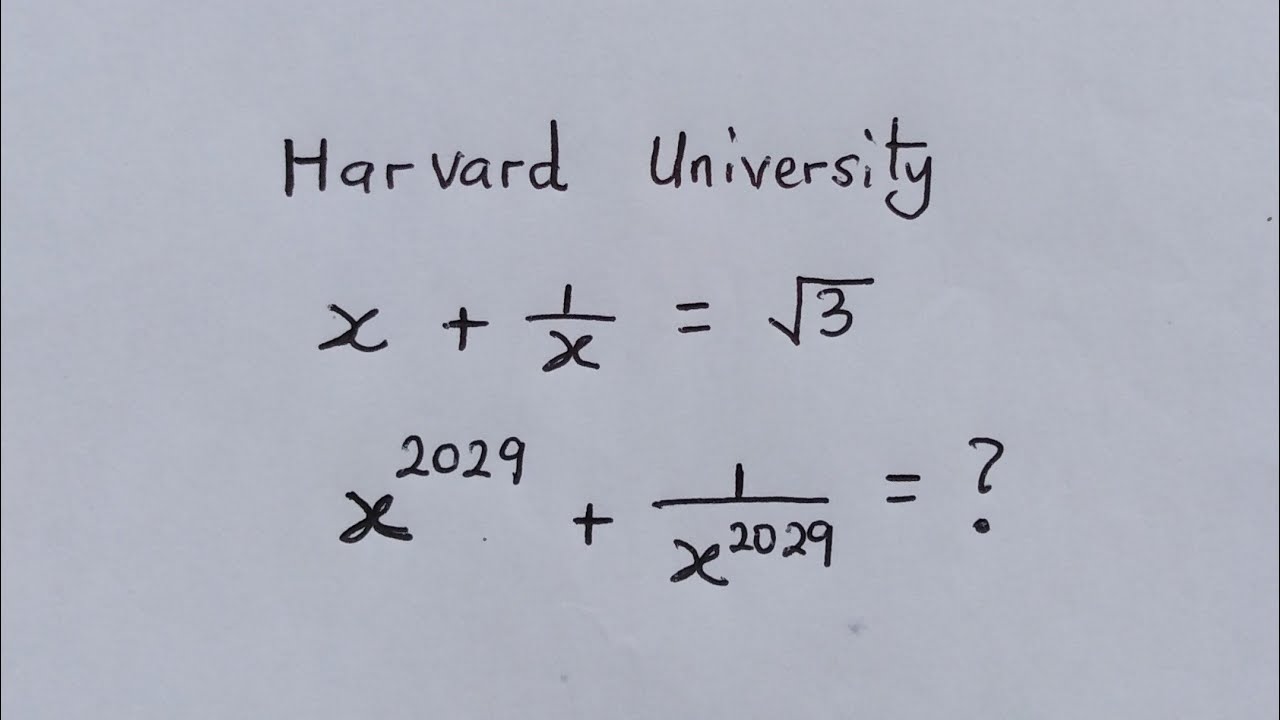 Harvard University
x + 1/x = √3
x^2029 + 1/x^2029 = ?